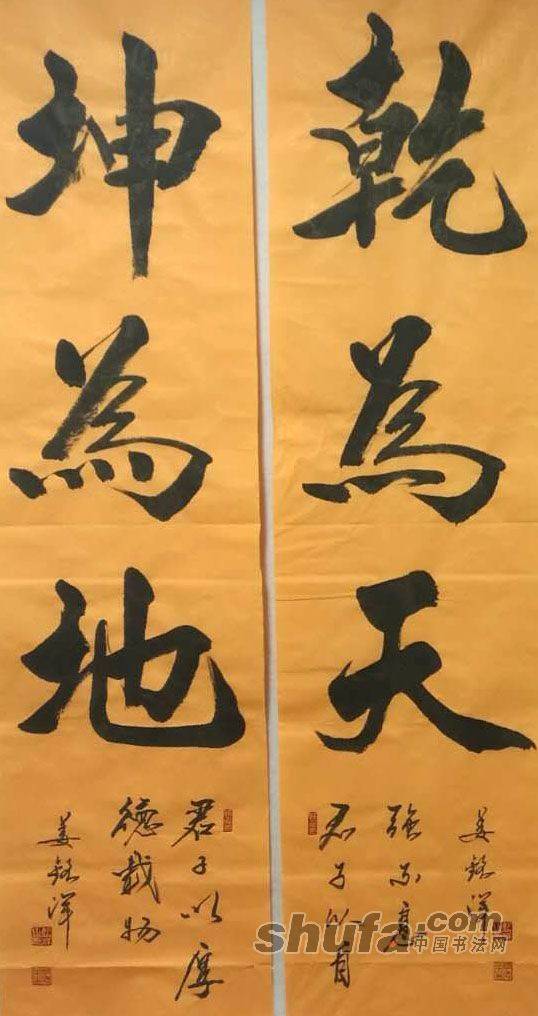 乾為天
君子以自
強不息
姜铭
坤為地
君子以厚
德載物
姜铭
shufa.com
中国书法网